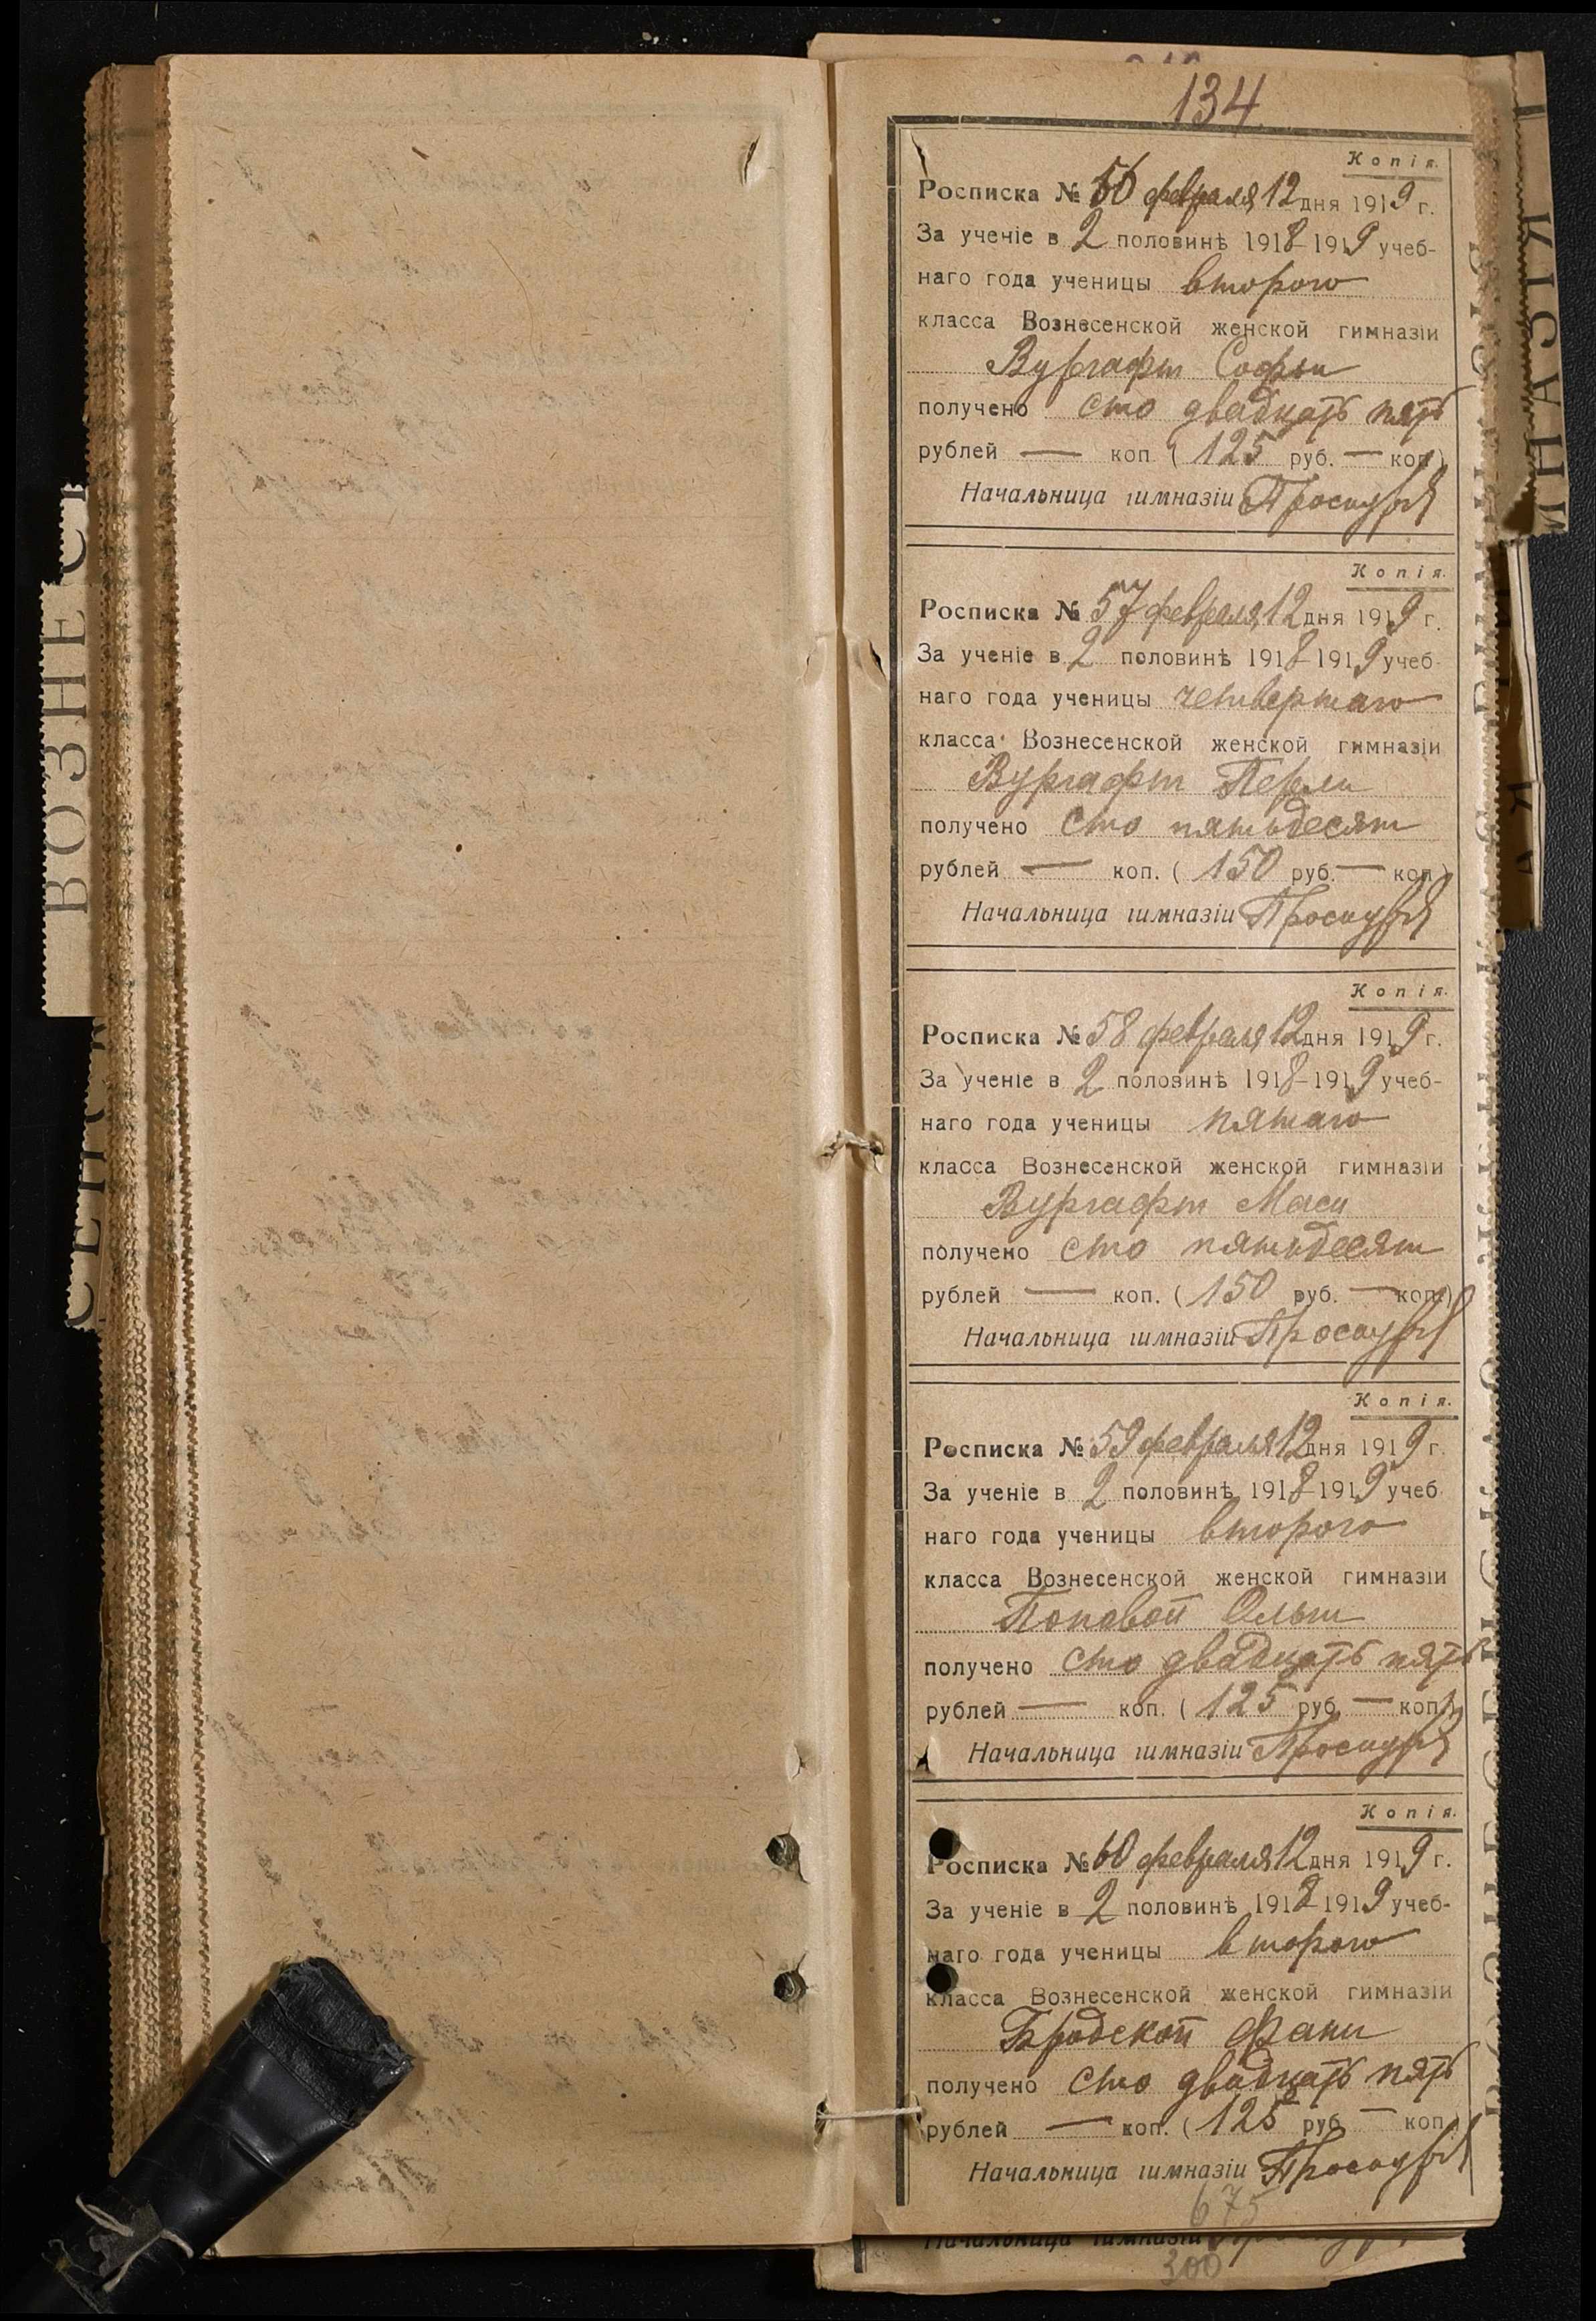 134
Копія.
Росписка № 56 февраля 12 дня 1919 г.
За ученіе в 2 половинѣ 1918-1919 учеб-
наго года ученицы второго
класса Вознесенской женской гимназіи
Вургафт Софьи
получено сто двадцать пять
рублей — коп. (125 руб. — коп.)
Начальница гимназіи
Копія.
Росписка № 57 февраля 12 дня 1919 г.
За ученіе в 2 половинѣ 1918-1919 учеб-
наго года ученицы четвертаго
класса Вознесенской женской гимназіи
Вургафт Перли
получено сто пятьдесят
рублей — коп. (150 руб. — коп.)
Начальница гимназіи
Копія.
Росписка № 58 февраля 12 дня 1919 г.
За ученіе в 2 половинѣ 1918-1919 учеб-
наго года ученицы пятаго
класса Вознесенской женской гимназіи
Вургафт Маси
получено сто пятьдесят
рублей — коп. (150 руб. — коп.)
Начальница гимназіи
Копія.
Росписка № 59 февраля 12 дня 1919 г.
За ученіе в 2 половинѣ 1918-1919 учеб
наго года ученицы второго
класса Вознесенской женской гимназіи
Поповой Ольги
получено сто двадцать пять
рублей — коп. (125 руб. — коп.)
Начальница гимназіи
Копія.
Росписка № 60 февраля 12 дня 1919 г.
За ученіе в 2 половинѣ 1918-1919 учеб-
наго года ученицы второго
класса Вознесенской женской гимназіи
Бродской Фани
получено сто двадцать пять
рублей — коп. (125 руб. — коп.)
Начальница гимназіи
675
Начальница гимназіи
300
ВОЗНЕС